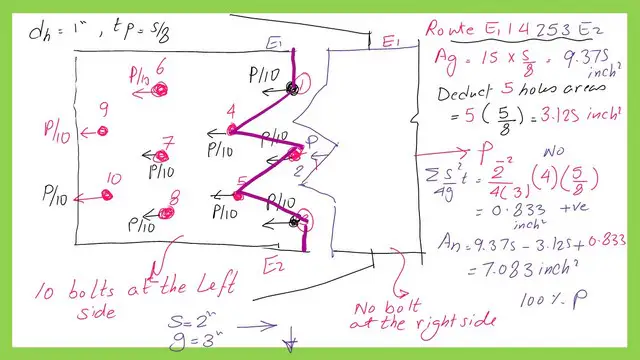 dh = 1", tp = 5/8
E1
E1
6
P/10
P/10
1
9
4
P/10
P/10
P/10
P
7
2
P/10
P/10
10
5
P/10
P/10
8
3
P/10
E2
10 bolts at the Left
side
S = 2"
g = 3"
No bolt
at the right side
P
Route E1 1 4 2 5 3 E2
Ag = 15 x 5/8 = 9.375 inch²
Deduct 5 holes areas
= 5 (5/8) = 3.125 inch²
NO
Σ S²/4g t = 2²/4(3) (4) (5/8)
= 0.833 +ve
inch²
An = 9.375 - 3.125 + 0.833
= 7.083 inch²
100 % P